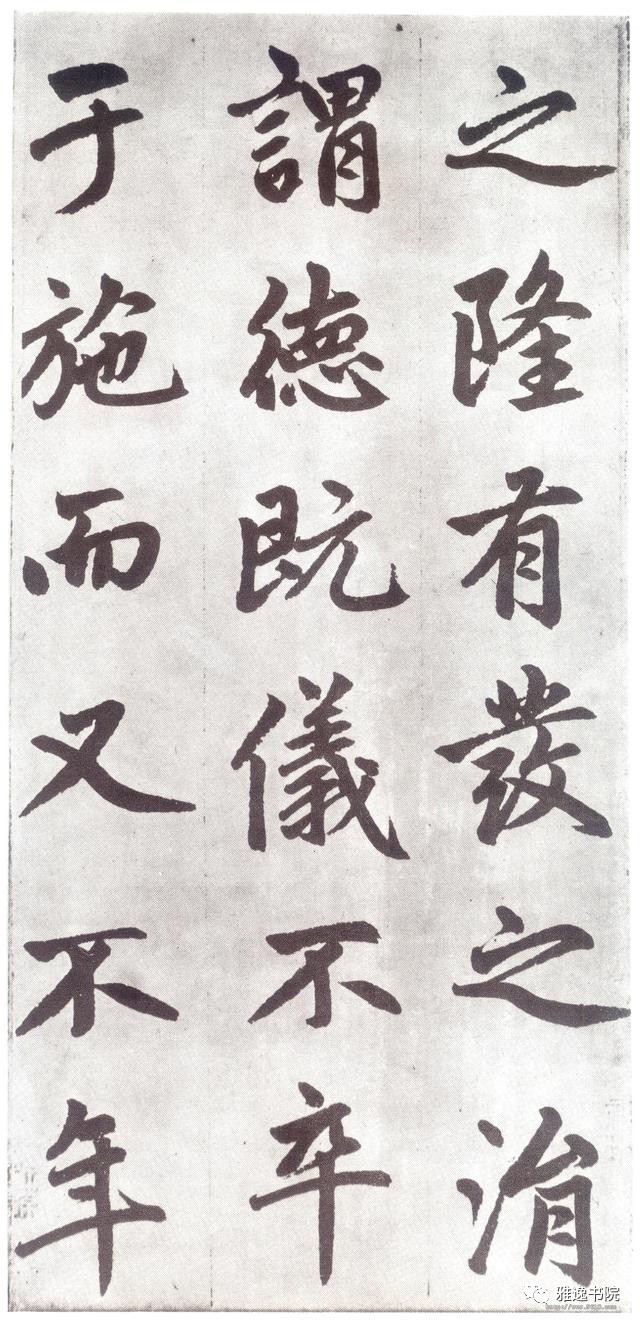 之隆有發之
謂德既儀不卒
于施而又不年
雅逸书院